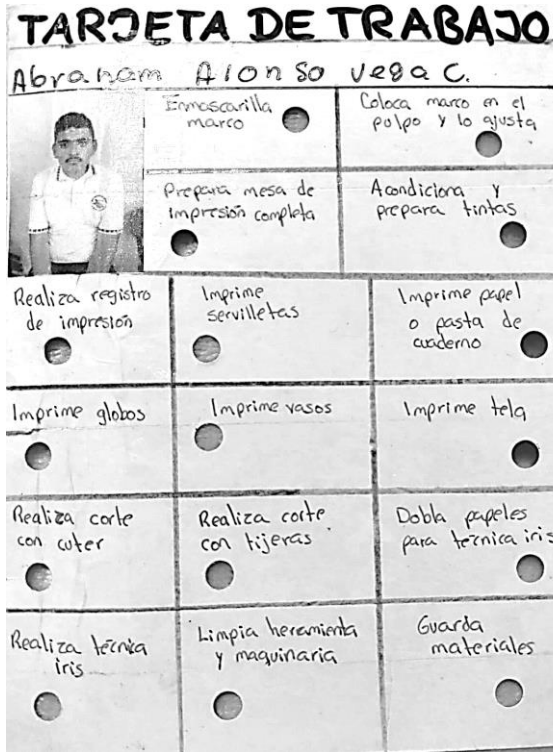 TARJETA DE TRABAJO
Abraham Alonso Vega C.
Enmascarilla
marco
Coloca marco en el
pulpo y lo ajusta
Prepara mesa de
impresión completa
Acondiciona y
prepara tintas
Realiza registro
de impresión
Imprime
servilletas
Imprime papel
o pasta de
cuaderno
Imprime globos
Imprime vasos
Imprime tela
Realiza corte
con cuter
Realiza corte
con tijeras
Dobla papeles
para tecnica iris
Realiza técnica
iris
Limpia heramienta
y maquinaria
Guarda
materiales